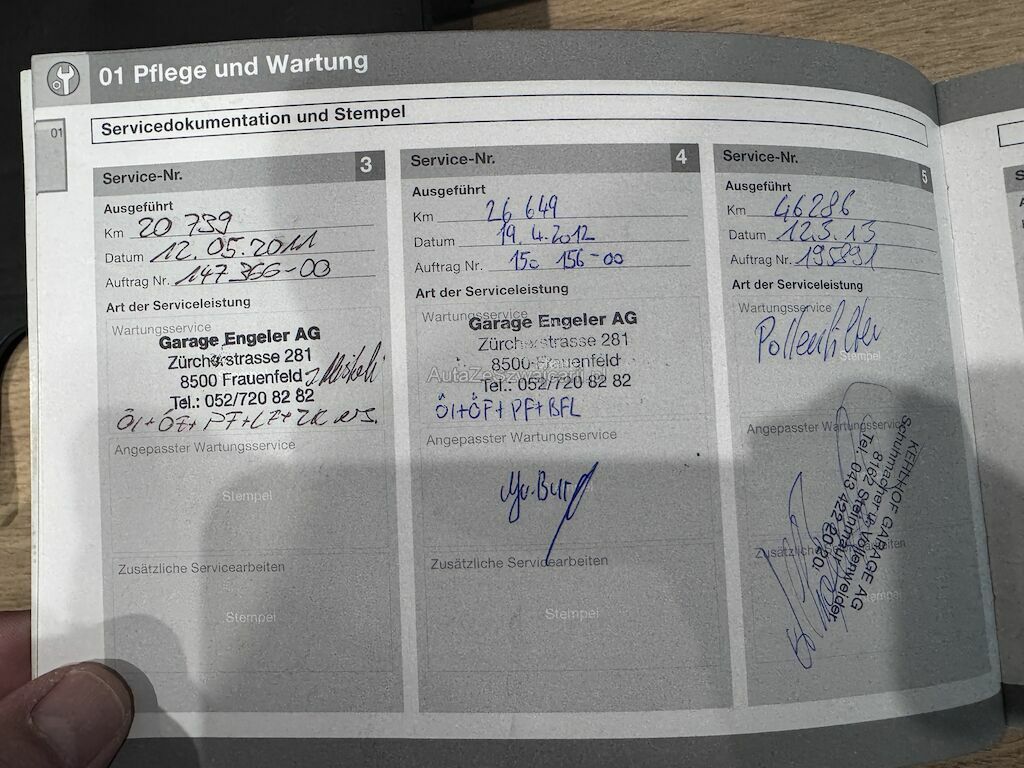 01 Pflege und Wartung
01
Servicedokumentation und Stempel
Service-Nr. 3
Ausgeführt
Km 20 739
Datum 12.05.2011
Auftrag Nr. 147 366-00
Art der Serviceleistung
Wartungsservice
Garage Engeler AG
Zürcherstrasse 281
8500 Frauenfeld
Tel.: 052/720 82 82
Öl+ÖF+PF+LF+ZK
Angepasster Wartungsservice
Stempel
Zusätzliche Servicearbeiten
Stempel
Service-Nr. 4
Ausgeführt
Km 26 649
Datum 19.4.2012
Auftrag Nr. 150 156-00
Art der Serviceleistung
Wartungsservice
Garage Engeler AG
Zürcherstrasse 281
8500 Frauenfeld
AutaZeSzwajcarii
Tel.: 052/720 82 82
Öl+ÖF+PF+BFL
Angepasster Wartungsservice
Zusätzliche Servicearbeiten
Stempel
Service-Nr. 5
Ausgeführt
Km 46286
Datum 12.3.13
Auftrag Nr. 195891
Art der Serviceleistung
Wartungsservice
Pollenfilter
Stempel
Angepasster Wartungsservice
KEHLHOF GARAGE AG
Schuhmacher u. Vollenweider
8162 Steinmaur
Tel. 043 422
Zusätzliche Servicearbeiten
Stempel